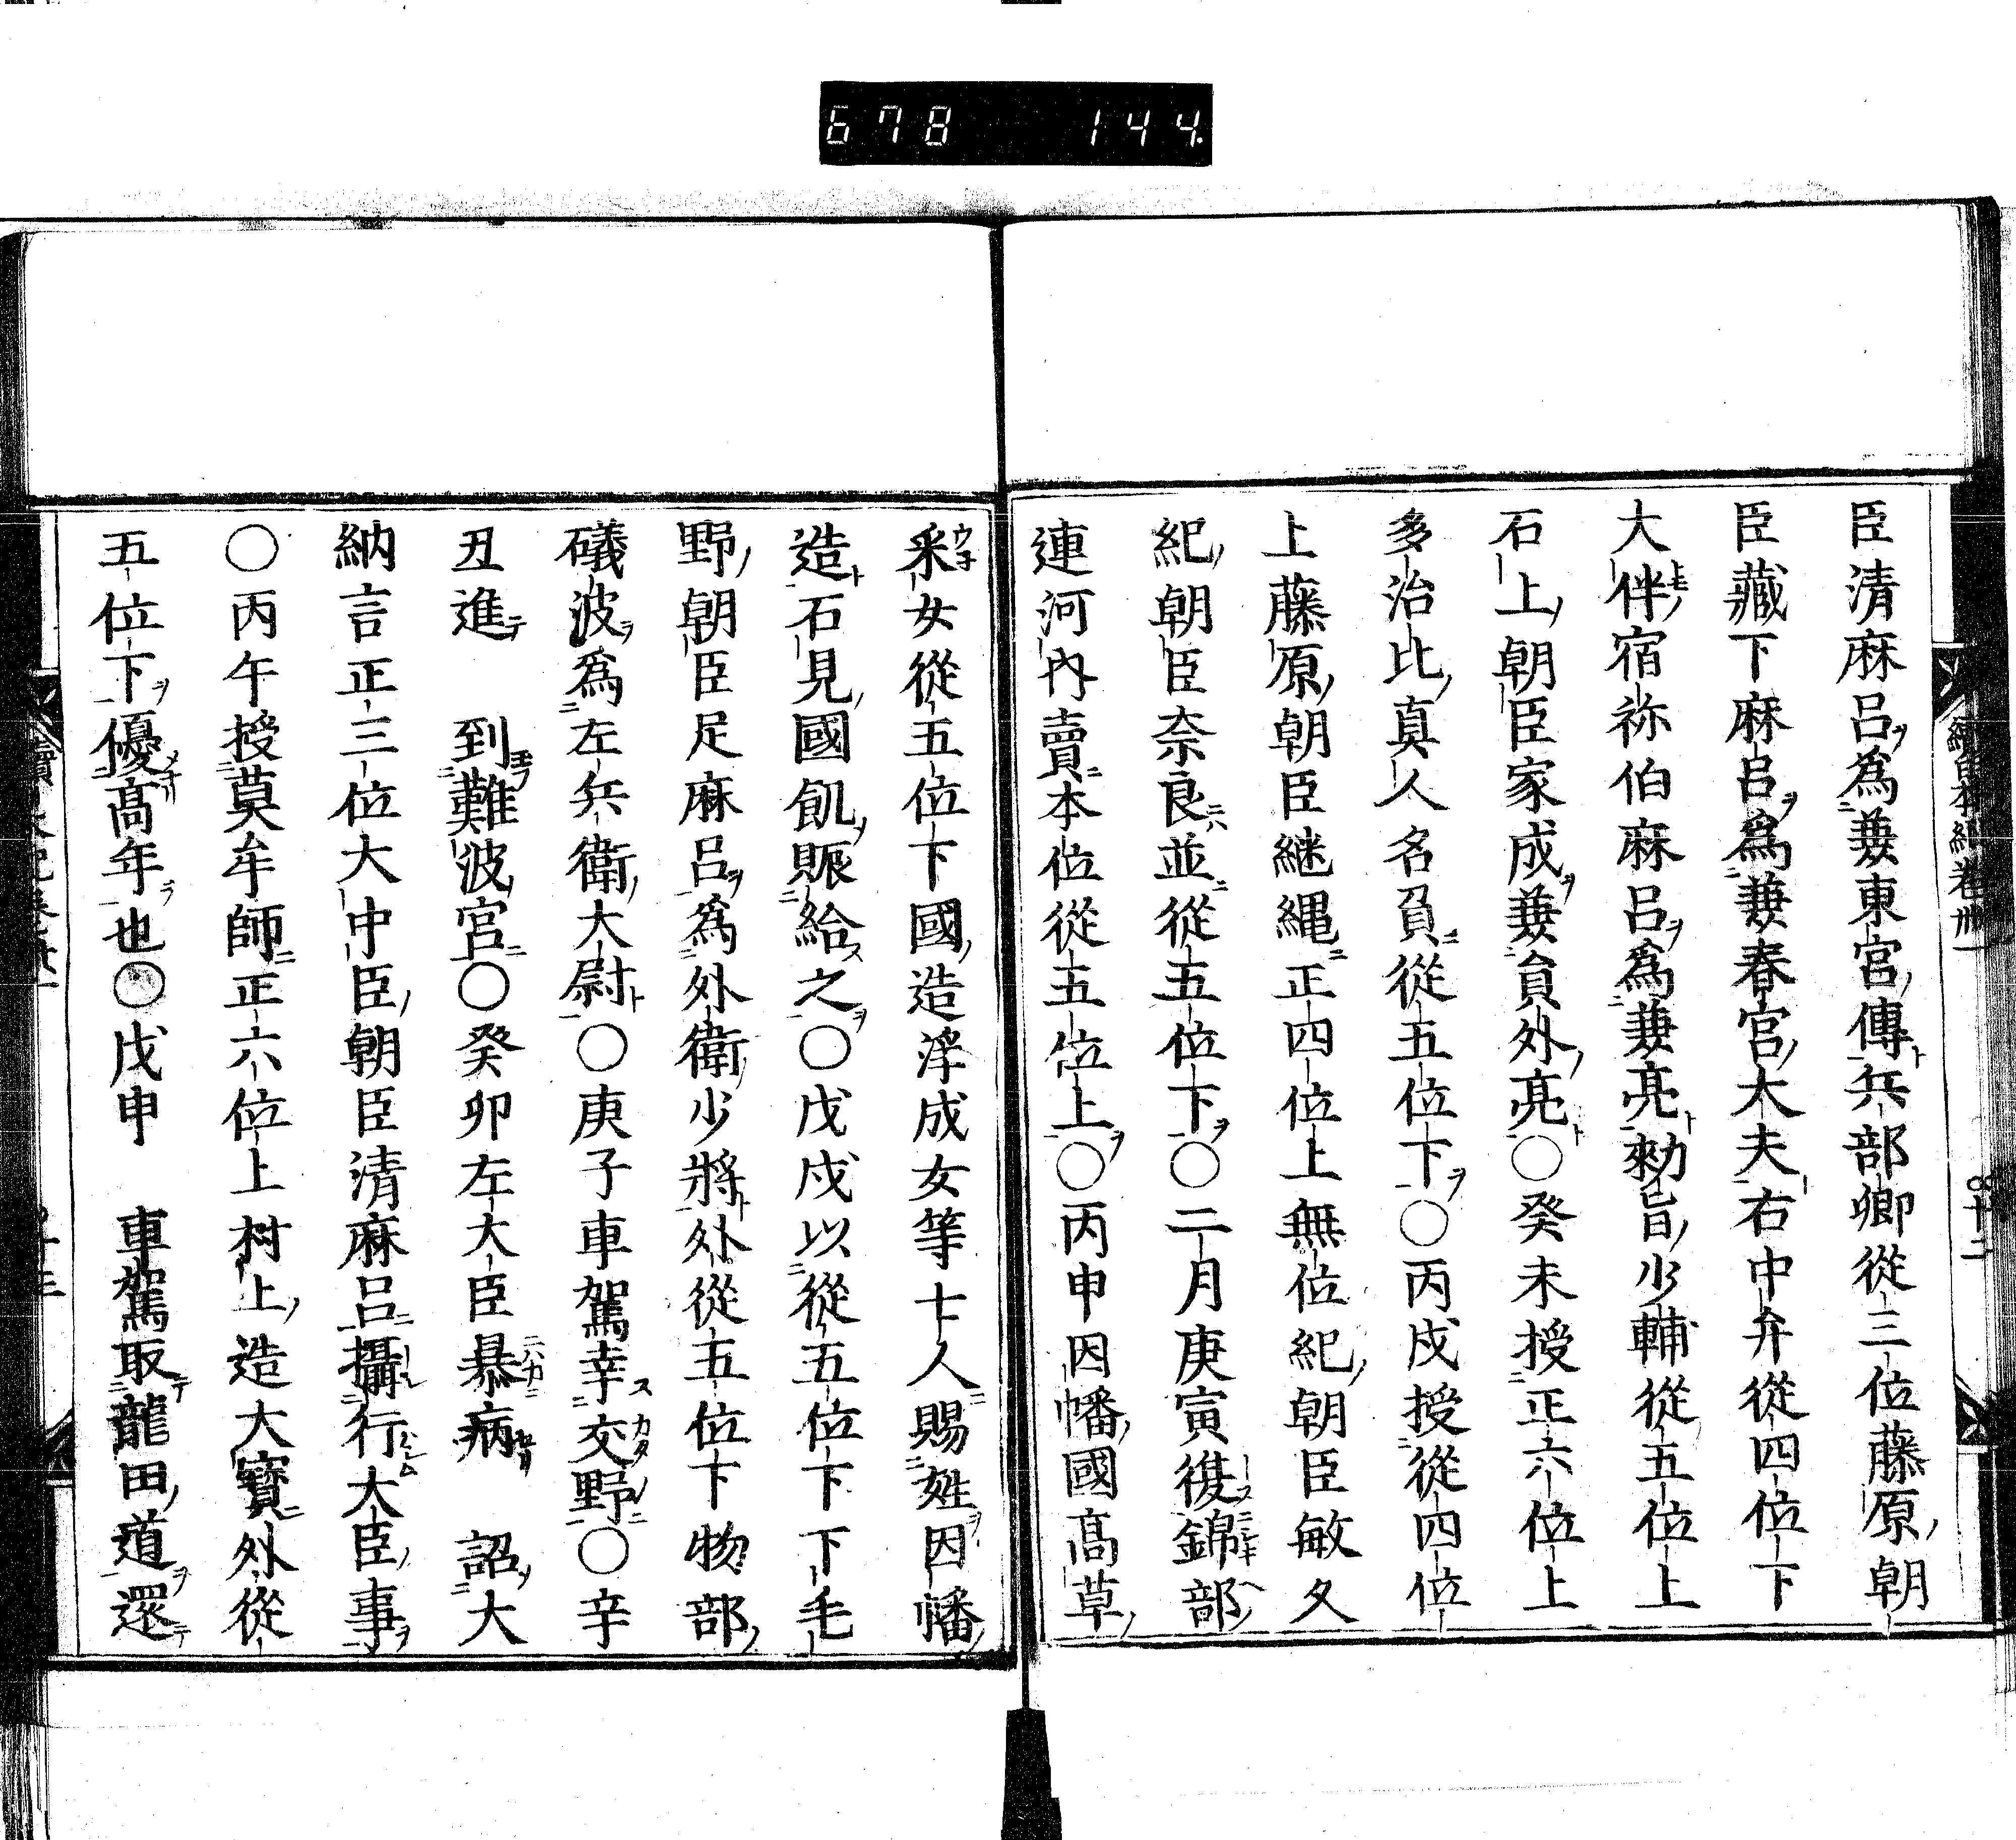 678 144
臣清麻呂爲兼東宮傅兵部卿從三位藤原朝
臣藏下麻呂爲兼春宮大夫右中弁從四位下
大伴宿祢伯麻呂爲兼亮勅旨少輔從五位上
石上朝臣家成兼負外亮〇癸未授正六位上
多治比真人名負從五位下〇丙戌授從四位
上藤原朝臣継縄正四位上無位紀朝臣敏久
紀朝臣奈良並從五位下〇二月庚寅復錦部
連河内賣本位從五位上〇丙申因幡國髙草
采女從五位下國造浄成女等七人賜姓因幡
國造石見國飢賑給之〇戊戌以從五位下下毛
野朝臣足麻呂爲外衛少將外從五位下物部
礒波爲左兵衛大尉〇庚子車駕幸交野〇辛
丑進到難波宮〇癸卯左大臣暴病詔大
納言正三位大中臣朝臣清麻呂攝行大臣事
〇丙午授莫牟師正六位上村上造大寶外從
五位下優髙年也〇戊申車駕取龍田道還
續日本紀卷卅一
十二